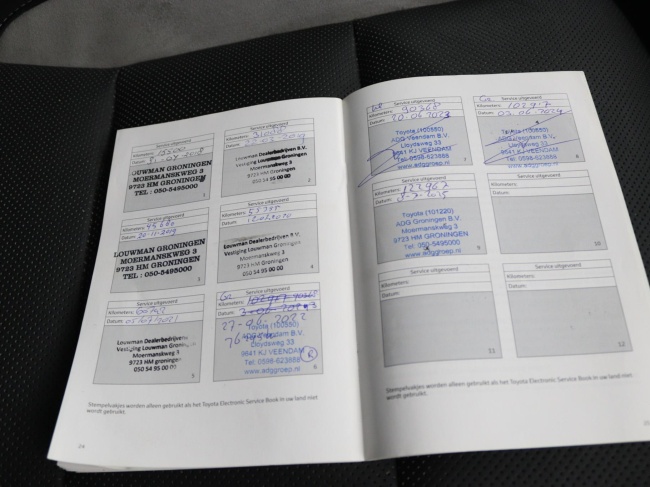 Service uitgevoerd
Kilometers: 15000
Datum:
LOUWMAN GRONINGEN
MOERMANSKWEG 3
9723 HM GRONINGEN
TEL : 050-5495000
1
Service uitgevoerd
Kilometers:
Datum:
Louwman Dealerbedrijven B.V.
Vestiging Louwman Groningen
Moermanskweg 3
9723 HM Groningen
050 54 95 00 00
2
Service uitgevoerd
Kilometers:
Datum: 20-11-2019
LOUWMAN GRONINGEN
MOERMANSKWEG 3
9723 HM GRONINGEN
TEL : 050-5495000
3
Service uitgevoerd
Kilometers:
Datum:
Louwman Dealerbedrijven B.V.
Vestiging Louwman Groningen
Moermanskweg 3
9723 HM Groningen
050 54 95 00 00
4
Service uitgevoerd
Kilometers:
Datum:
Louwman Dealerbedrijven
Vestiging Louwman Groningen
Moermanskweg 3
9723 HM groningen
050 54 95 00 00
5
Service uitgevoerd
Kilometers:
Datum:
27-06-2022
Toyota (100580)
ADG Veendam B.V.
Lloydsweg 33
9641 KJ VEENDAM
Tel. 0598-623888
www.adggroep.nl
6
Stempelvakjes worden alleen gebruikt als het Toyota Electronic Service Book in uw land niet
wordt gebruikt.
24
Service uitgevoerd
Kilometers: 90368
Datum: 20-06-2023
Toyota (100580)
ADG Veendam B.V.
Lloydsweg 33
9641 KJ VEENDAM
Tel. 0598-623888
7
Service uitgevoerd
Kilometers: 102917
Datum: 03-06-2024
Toyota (100580)
ADG Veendam B.V.
Lloydsweg 33
9641 KJ VEENDAM
Tel. 0598-623888
8
Service uitgevoerd
Kilometers: 121967
Datum: 8-7-2025
Toyota (101220)
ADG Groningen B.V.
Moermanskweg 3
9723 HM GRONINGEN
Tel. 050-5495000
www.adggroep.nl
9
Service uitgevoerd
Kilometers:
Datum:
10
Service uitgevoerd
Kilometers:
Datum:
11
Service uitgevoerd
Kilometers:
Datum:
12
Stempelvakjes worden alleen gebruikt als het Toyota Electronic Service Book in uw land niet
wordt gebruikt.